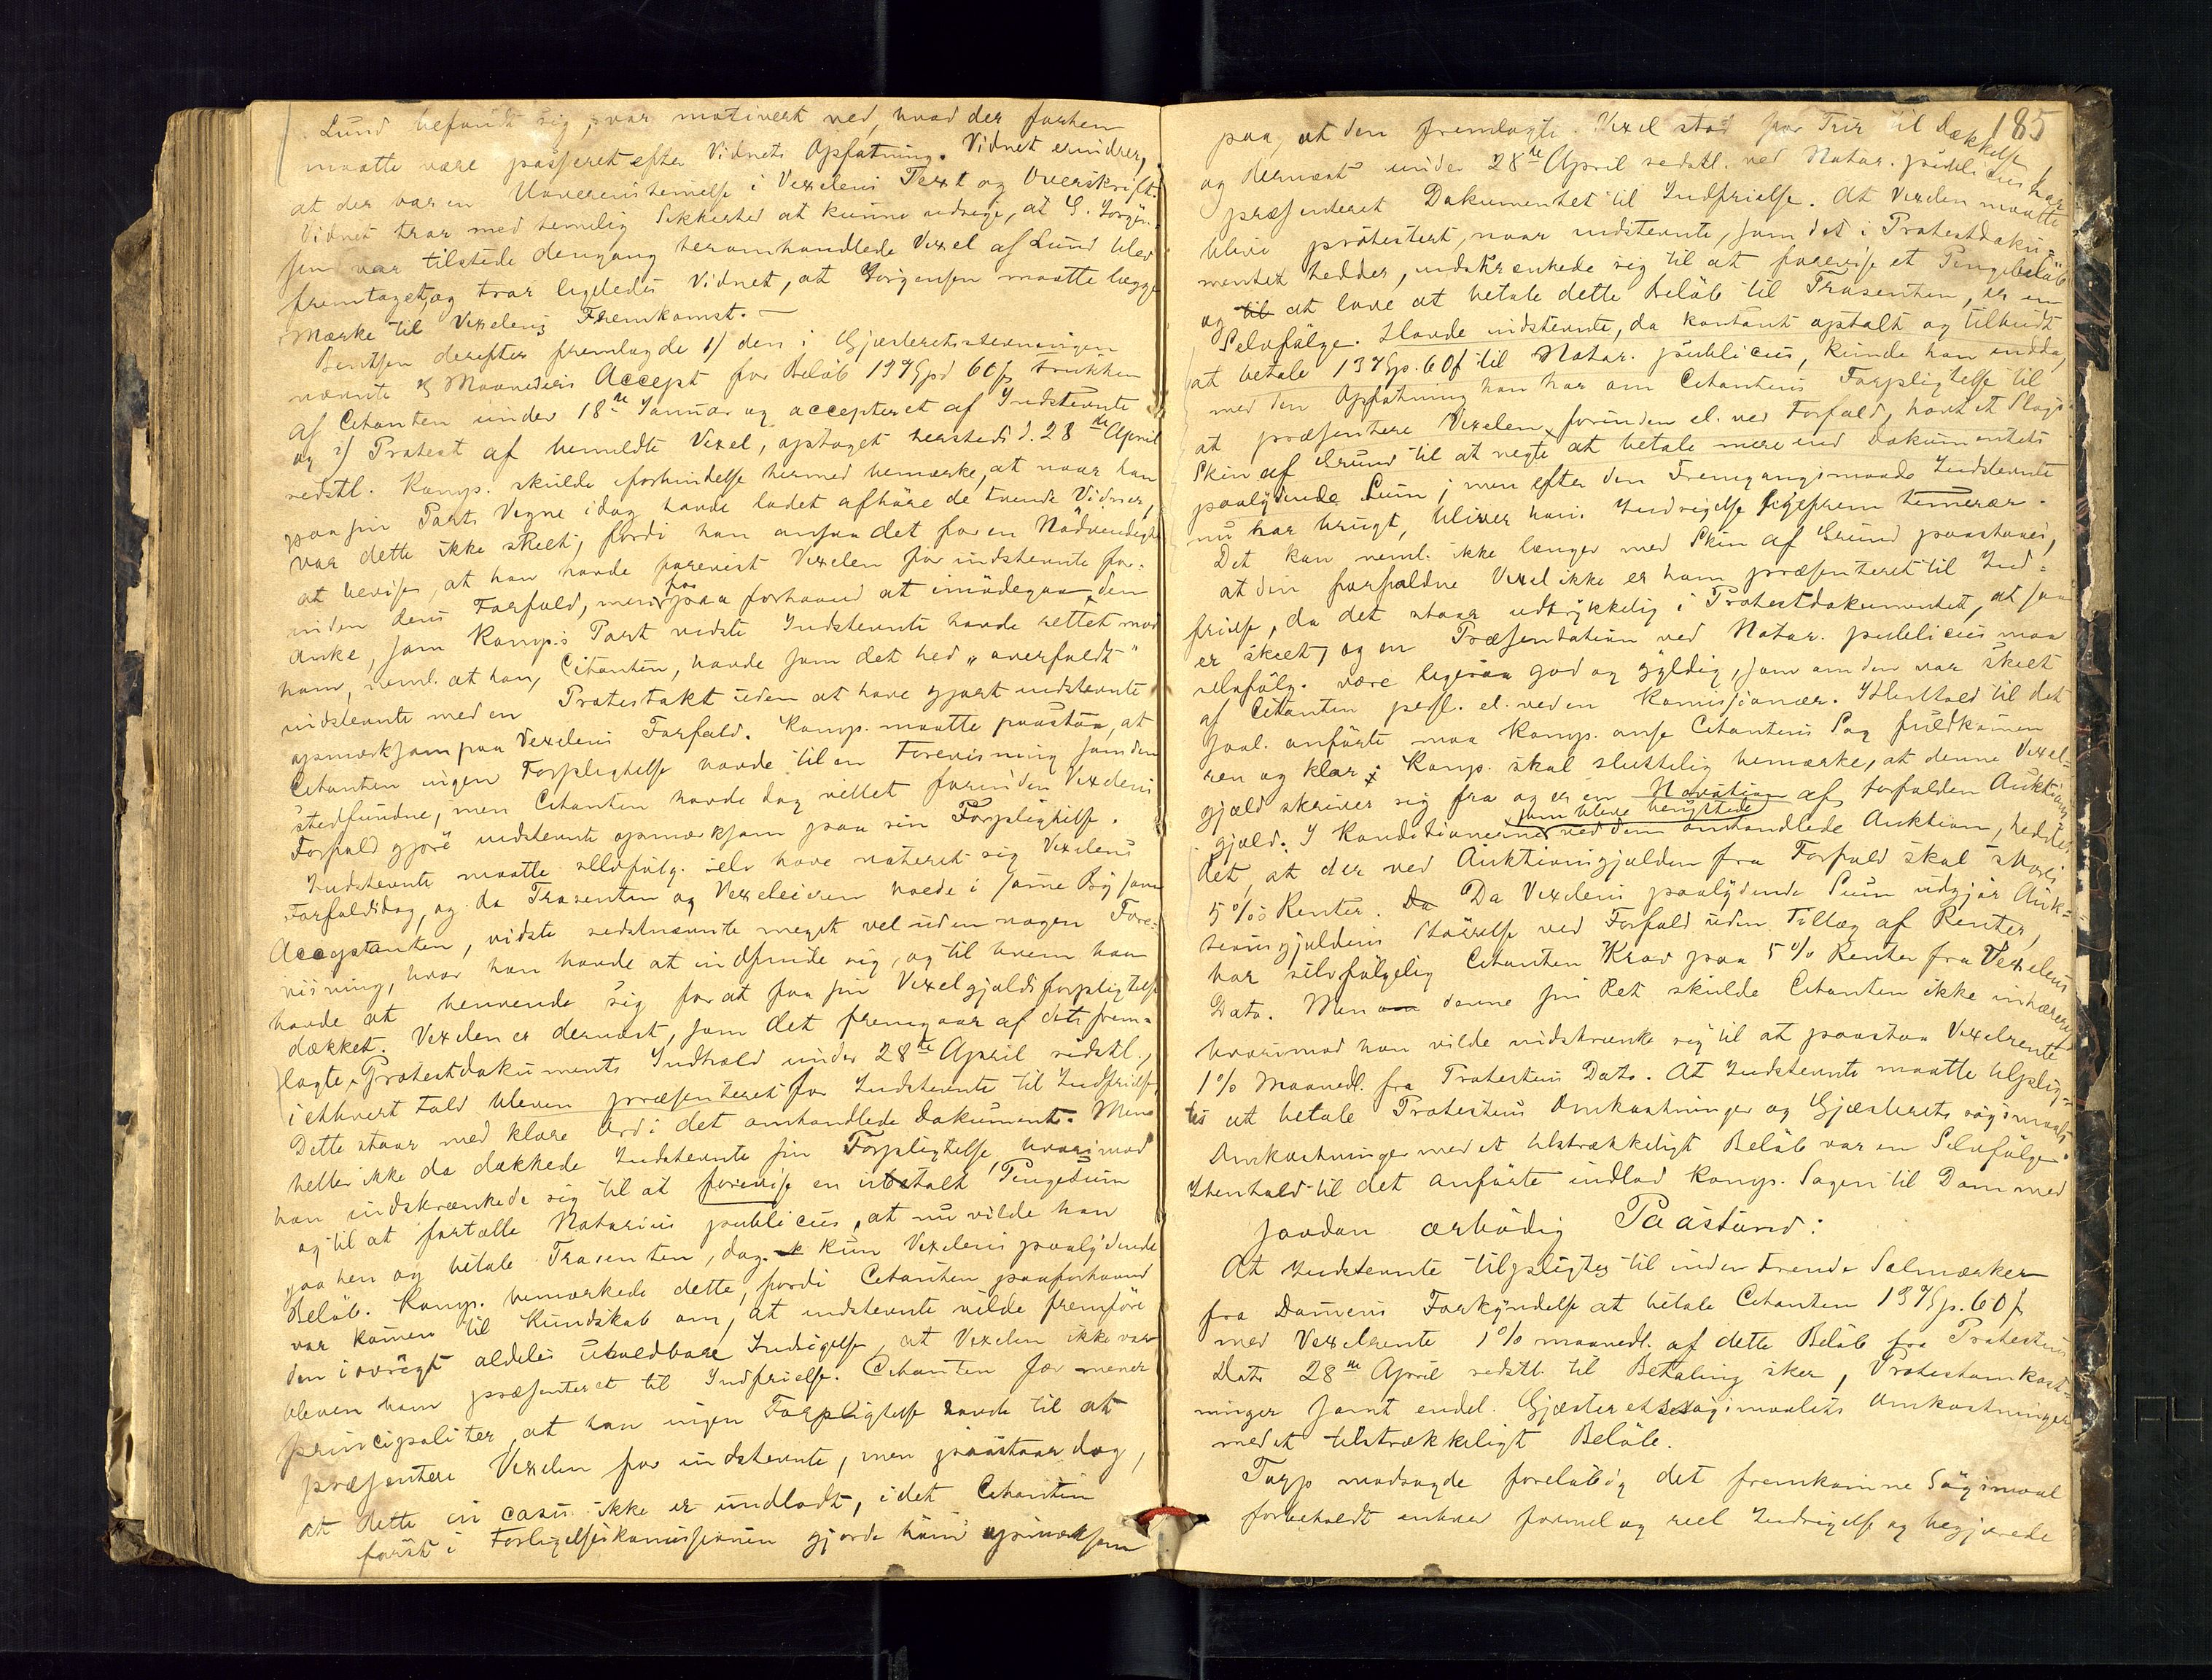 Lund befandt sig, var motivert ved, hvad der forhen
maatte være passeret efter Vidnets Opfatning. Vidnet erindrer,
at der var en Uoverensstemelse i Vexelens Text og Overskrift.
Vidnet tror med temelig Sikkerhed at kunne udsige, at G. Jörgen-
sen var tilstede dengang heromhandlede Vexel af Lund blev
fremtaget, og tror ligeledes Vidnet, at Jörgensen maatte lægge
Mærke til Vexelens Fremkomst. —
Bentsen derefter fremlagde 1) den i Gjæsteretsstevningen
nævnte 3 Maaneders Accept for Beløb 137 Spd 60 ß trukken
af Citanten under 18de Januar og accepteret af Indstevnte
og 2) Protest af bemeldte Vexel, optaget hersteds d. 28de April
sidstl. Komp. skulde i forbindelse hermed bemærke, at naar han
paa sin Parts Vegne idag havde ladet afhöre de tvende Vidner,
var dette ikke skeet, fordi han ansaa det for en Nödvendighed
at bevise, at han havde forevist Vexelen for indstevnte for-
inden dens Forfald, men for paa forhaand at imödegaa den
Anke, som Komp.s Part vidste Indstevnte havde rettet mod
ham, neml. at han, Citanten, havde som det hed „overfaldt"
indstevnte med en Protestakt uden at have gjort indstevnte
opmerksom paa Vexelens Forfald. Komp. maatte paastaa, at
Citanten ingen Forpligtelse havde til en Forevisning som den
stedfundne, men Citanten havde dog villet forinden Vexelens
Forfald gjöre indstevnte opmærksom paa sin Forpligtelse.
Indstevnte maatte selvfölg. selv have noteret sig Vexelens
Forfaldsdag, og da Trasenten og Vexeleieren boede i same By som
Acceptanten, vidste sidstnævnte meget vel uden nogen Fore-
visning, hvor han havde at indfinde sig, og til hvem han
havde at henvende sig for at faa sin Vexelgjældsforpligtelse
dækket. Vexelen er dernæst, som det fremgaar af det frem-
lagte Protestdokuments Indhold under 28de April sidstl.,
i ethvert Fald bleven præsenteret for Indstevnte til Indfrielse,
Dette staar med klare Ord i det omhandlede Dokument. Men
heller ikke da dækkede Indstevnte sin Forpligtelse, hvorimod
han indskrænkede sig til at forevise en utalt Pengesum
og til at fortælle Notarius publicus, at nu vilde han
gaa hen og betale Trasenten, dog kun Vexelens paalydende
Beløb. Komp. bemærkede dette, fordi Citanten paaforhaand
var komen til Kundskab om, at indstevnte vilde fremföre
den iövrigt aldeles uholdbare Indsigelse, at Vexelen ikke var
bleven ham præsenteret til Indfrielse. Citanten for mener
principaliter, at han ingen Forpligtelse havde til at
præsentere Vexelen for indstevnte, men paastaar dog,
at dette in casu ikke er undladt, idet Citanten
först i Forligelseskomissionen gjorde ham opmærksom
185
paa, at den fremlagte Vexel stod for Trir til Dækkelse,
og dernæst under 28de April sidstl. ved Notar. publicus har
præsenteret Dokumentet til Indfrielse. At Vexelen maatte
blive protestert, naar indstevnte, som det i Protestdoku-
mentet hedder, indskrænkede sig til at forevise et Pengebelöb
og til at love at betale dette Belöb til Trasenten, er en
Selvfölge. Havde indstevnte, da kontant optalt og tilbudt
at betale 137 Sp. 60 ß til Notar. publicus, kunde han endda,
med den Opfatning han har om Citantens Forpligtelse til
at præsentere Vexelen forinden el. ved Forfald, havt et Slags
Skin af Grund til at negte at betale mere end Dokumentets
paalydende Sum; men efter den Fremgangsmaade Indstevnte
nu har brugt, bliver hans Indsigelse ligefrem temerær.
Det kan neml. ikke længer med Skin af Grund paastaaes,
at den forfaldne Vexel ikke er ham præsenteret til Ind-
frielse, da det staar udtrykkelig i Protestdokumentet, at saa
er skeet, og en Præsentation ved Notar. publicus maa
selvfölg. være ligesaa god og gyldig, som om den var skeet
af Citanten pers. el. ved en Komissionær. I Henhold til det
saal. anförte maa Komp. anse Citantens Sag fuldkomen
ren og klar. Komp. skal sluttelig bemærke, at denne Vexel-
gjæld skriver sig fra og er en Novation af forfalden Auktions-
gjæld. I Konditionerne som bleve benyttede ved den omhandlede Auktion, hedder
det, at der ved Auktionsgjælden fra Forfald skal svares
5 % Renter. Da Da Vexelens paalydende Sum udgjör Auk-
tionsgjældens Störrelse ved Forfald uden Tillæg af Renter,
har selvfölgelig Citanten Krav paa 5 % Renter fra Vexelens
Dato. Men denne sin Ret skulde Citanten ikke inhærere
hvorimod han vilde indskrænke sig til at paastaa Vexelrente
1 % Maanedl. fra Protestens Dato. At Indstevnte maatte tilplig-
tes at betale Protestens Omkostninger og Gjæsterets sögsmaalets
Omkostninger med et tilstrækkeligt Belöb var en Selvfölge.
I Henhold til det anförte indlod Komp. Sagen til Dom med
saadan ærbödig Paastand:
At Indstevnte tilpligtes til inden trende Solmærker
fra Domens Forkyndelse at betale Citanten 137 Sp. 60 ß
med Vexelrente 1 % maanedl. af dette Belöb fra Protestens
Dato 28de April sidstl. til Betaling sker, Protestomkost-
ninger samt endel. Gjæsteretssögsmaalets Omkostninger
med et tilstrækkeligt Belöb.
Torp modsagde forelöbig det fremkomne Sögsmaal
forbeholdt enhver formel og reel Indsigelse og begjærede